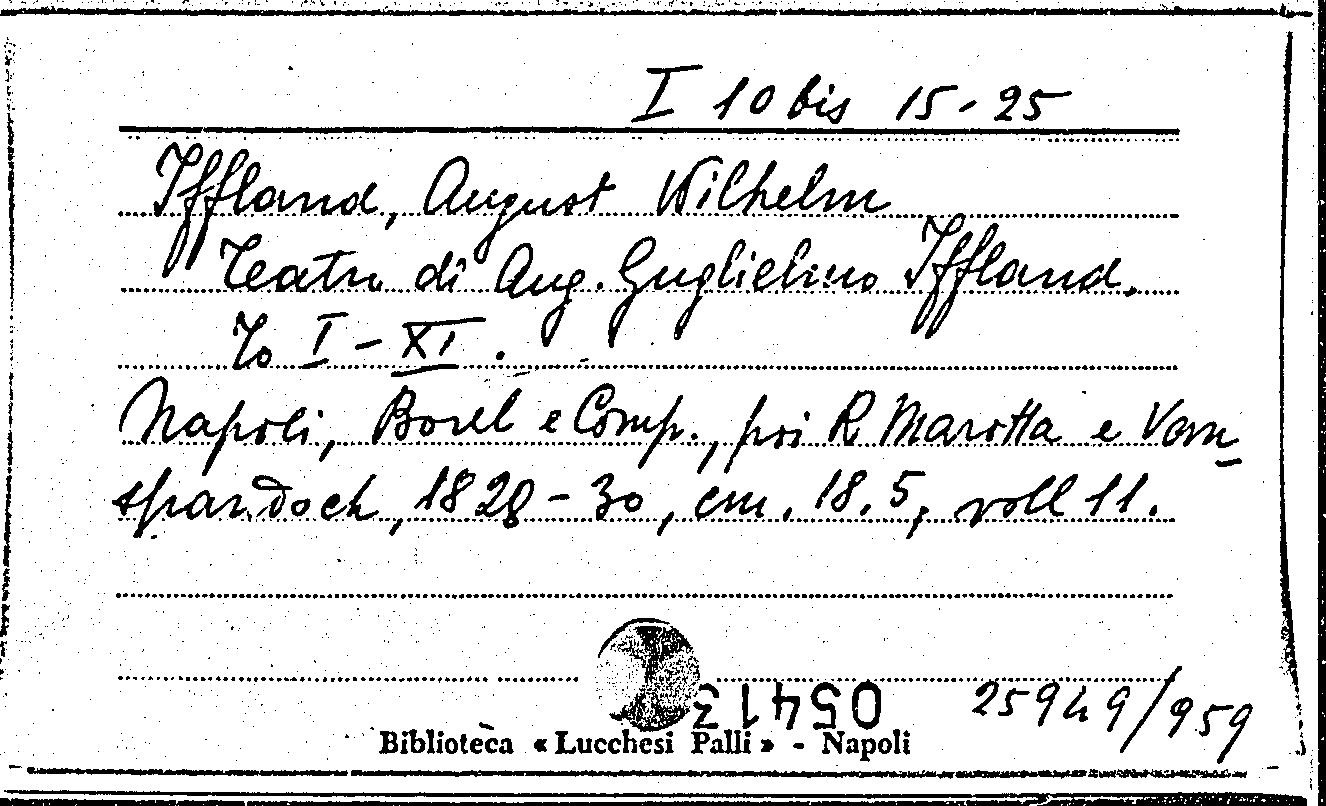 I 10 bis 15-25
Iffland, August Wilhelm
Teatro di Aug. Guglielmo Iffland.
To I - XI.
Napoli, Borel e Comp., poi R Marotta e Vans
pandoch, 1828-30, cm. 18.5, voll 11.
05413
25949/959
Biblioteca « Lucchesi Palli » - Napoli